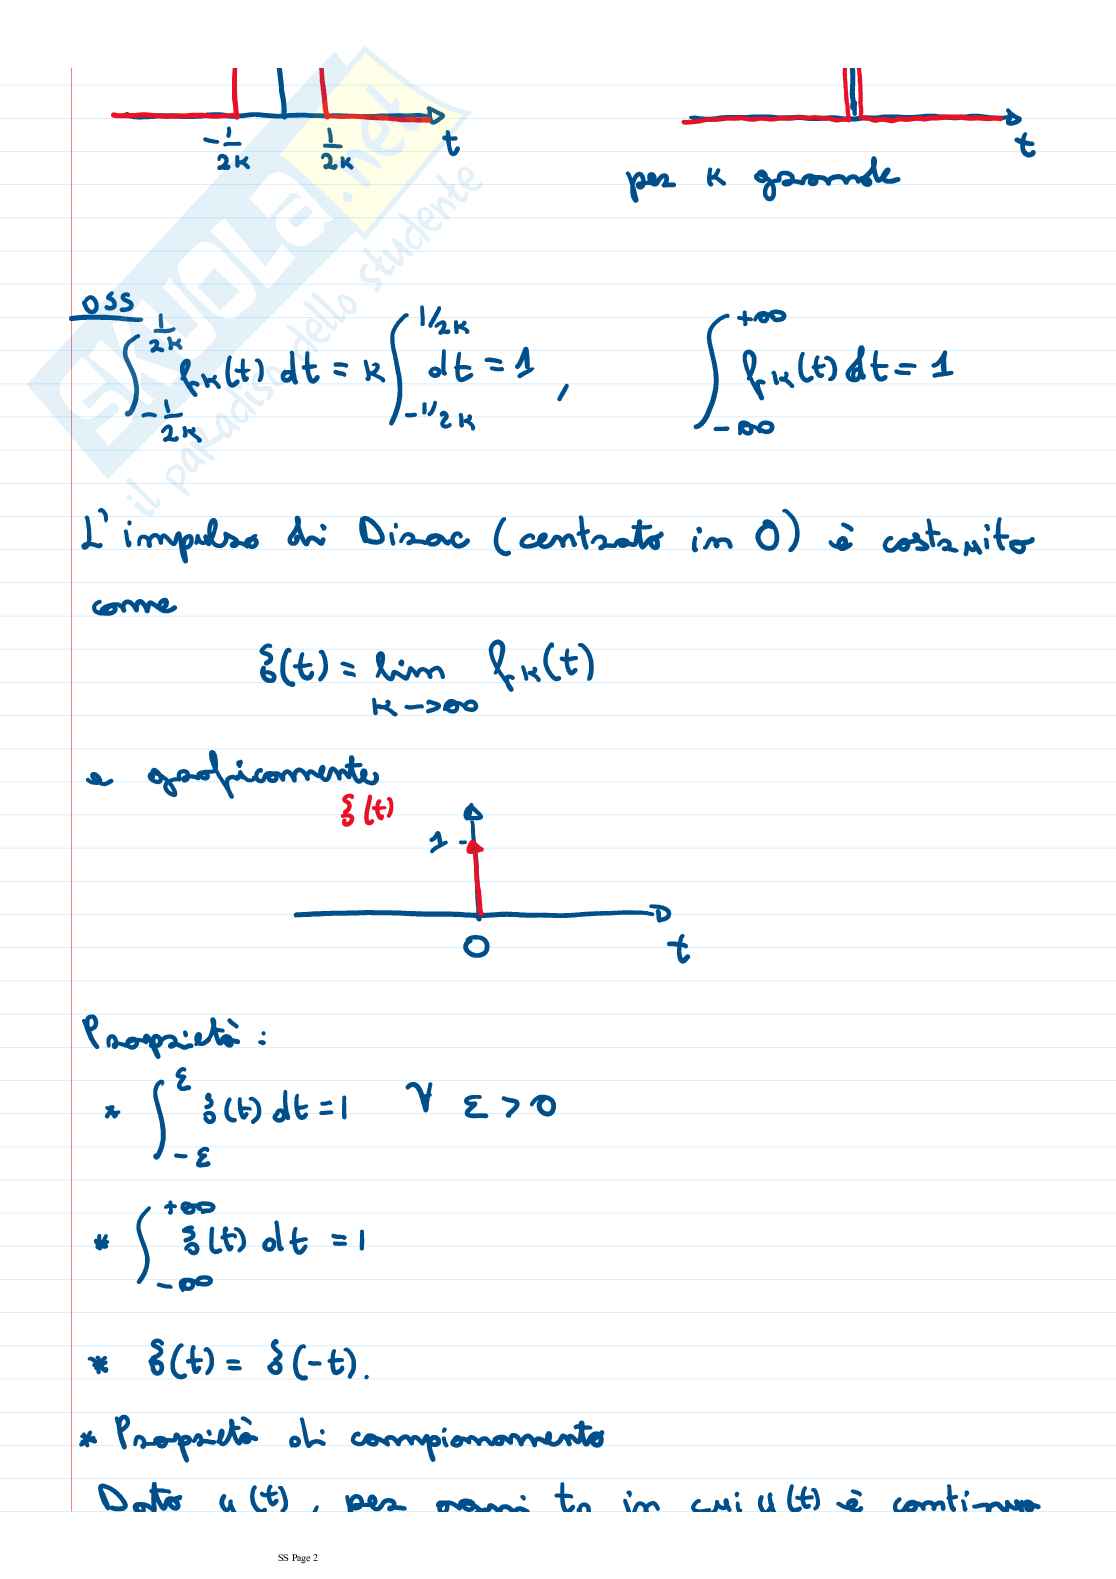 -1/2k 1/2k t t
per k grande
OSS
∫_{-1/2k}^{1/2k} f_k(t) dt = k ∫_{-1/2k}^{1/2k} dt = 1 , ∫_{-∞}^{+∞} f_k(t) dt = 1
L'impulso di Dirac (centrato in 0) è costruito
come
δ(t) = lim_{k->∞} f_k(t)
e graficamente
δ(t)
1
0 t
Proprietà :
* ∫_{-ε}^{ε} δ(t) dt = 1 ∀ ε > 0
* ∫_{-∞}^{+∞} δ(t) dt = 1
* δ(t) = δ(-t).
* Proprietà di campionamento
Dato u(t), per ogni t₀ in cui u(t) è continua
SKUOLA.net
il paradiso dello studente
SS Page 2